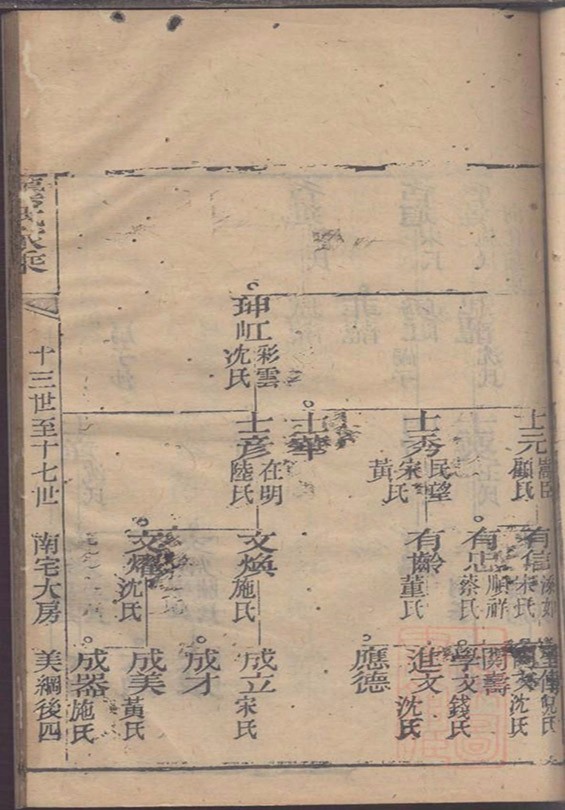 珅虹 彩雲 沈氏
士元 顧氏
士秀 民望 宋氏 黃氏
士華
士彦 在明 陸氏
有信
有忠 順祥 蔡氏
有齡 董氏
文煥 施氏
文燿 沈氏
沈氏
學文 錢氏
進文 沈氏
應德
成立 宋氏
成才
成美 黃氏
成器 施氏
十三世至十七世 南宅大房 美綱後四